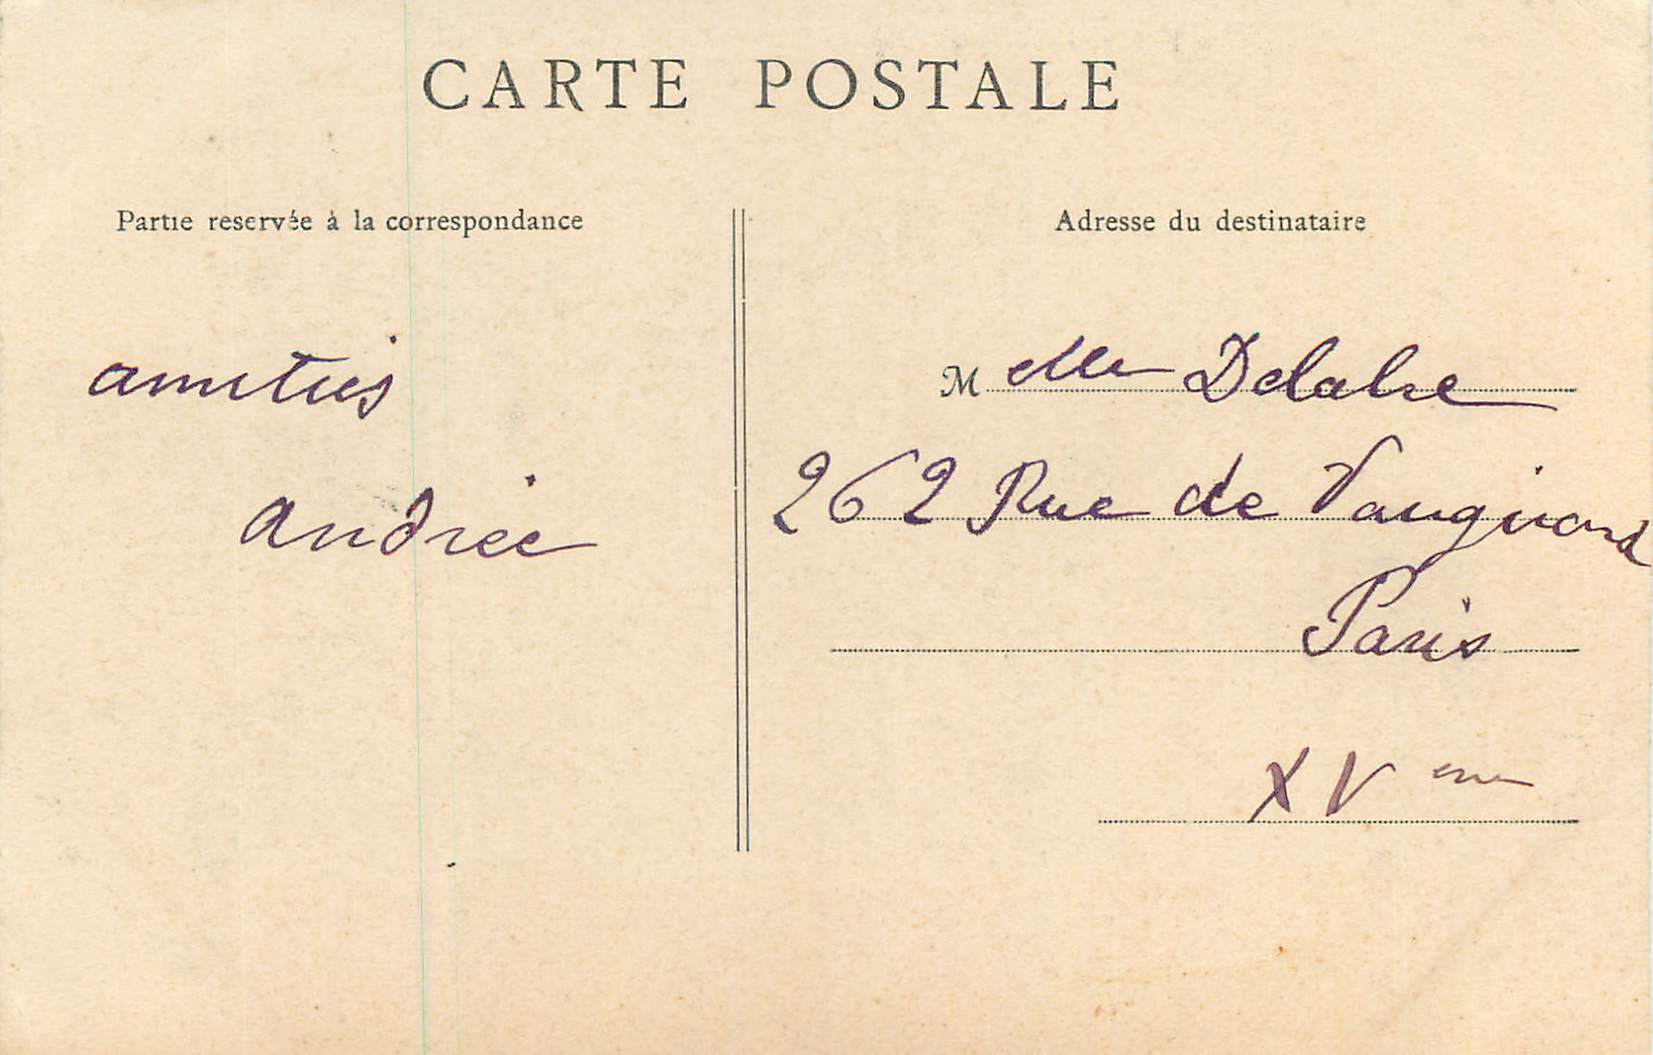 CARTE POSTALE
Partie reservée à la correspondance
Adresse du destinataire
amitiés
Andrée
Melle
262 Rue de Vaugirard
Paris
XVeme